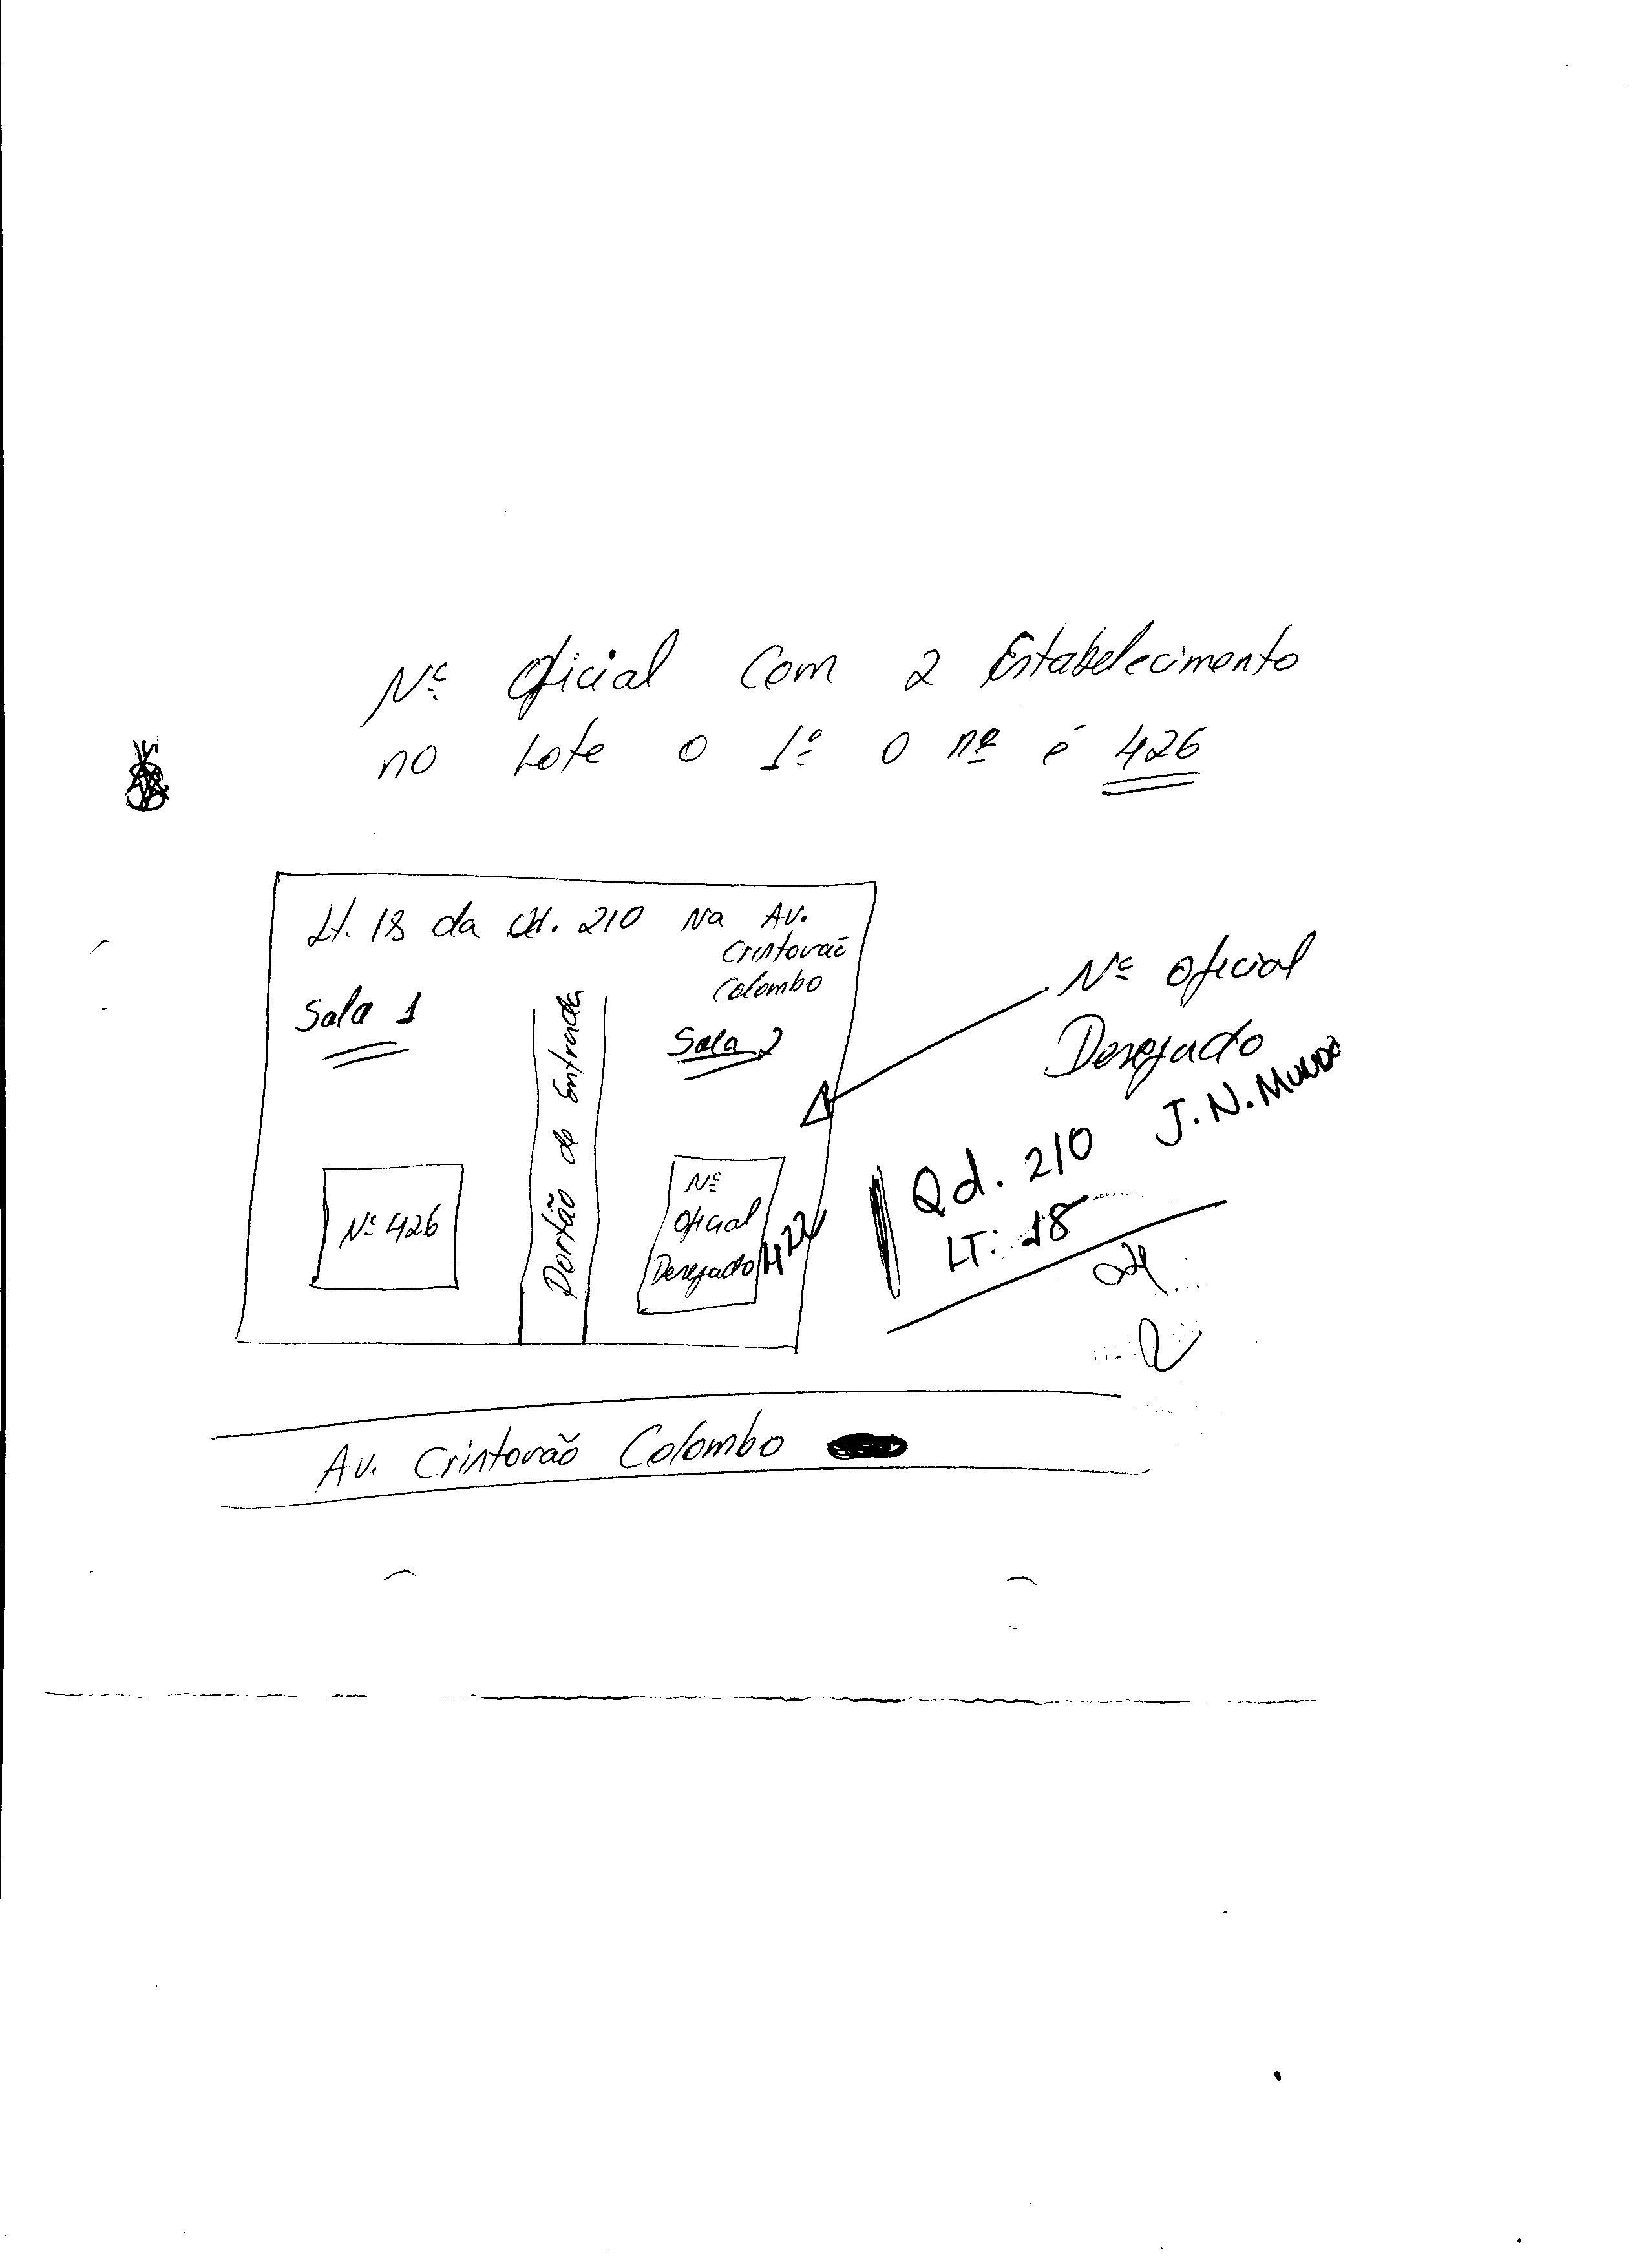 Nº Oficial Com 2 Estabelecimento
no Lote o 1º o nº é 426
Lt. 18 da Qd. 210 Na Av.
Cristovão
Colombo
Sala 1
Sala 2
Portão de Entrada
Nº 426
Nº
Oficial
Desejado 422
Nº Oficial
Desejado
J. N. Mundo
Qd. 210
LT: 18
Av. Cristovão Colombo